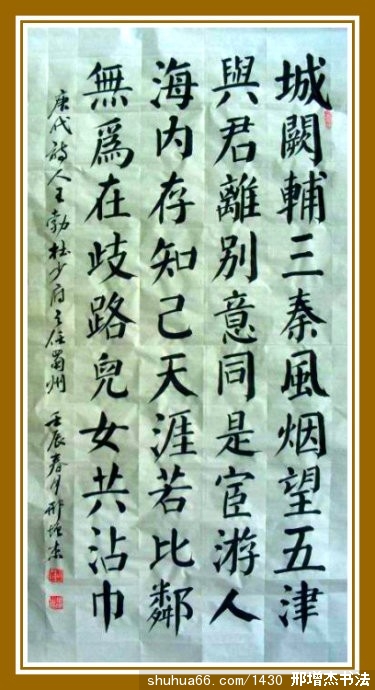 城闕輔三秦風烟望五津
與君離別意同是宦游人
海内存知己天涯若比鄰
無爲在歧路兒女共沾巾
唐代詩人王勃杜少府之任蜀州 壬辰春月邢增杰
shuhua66.com/1430 邢增杰书法